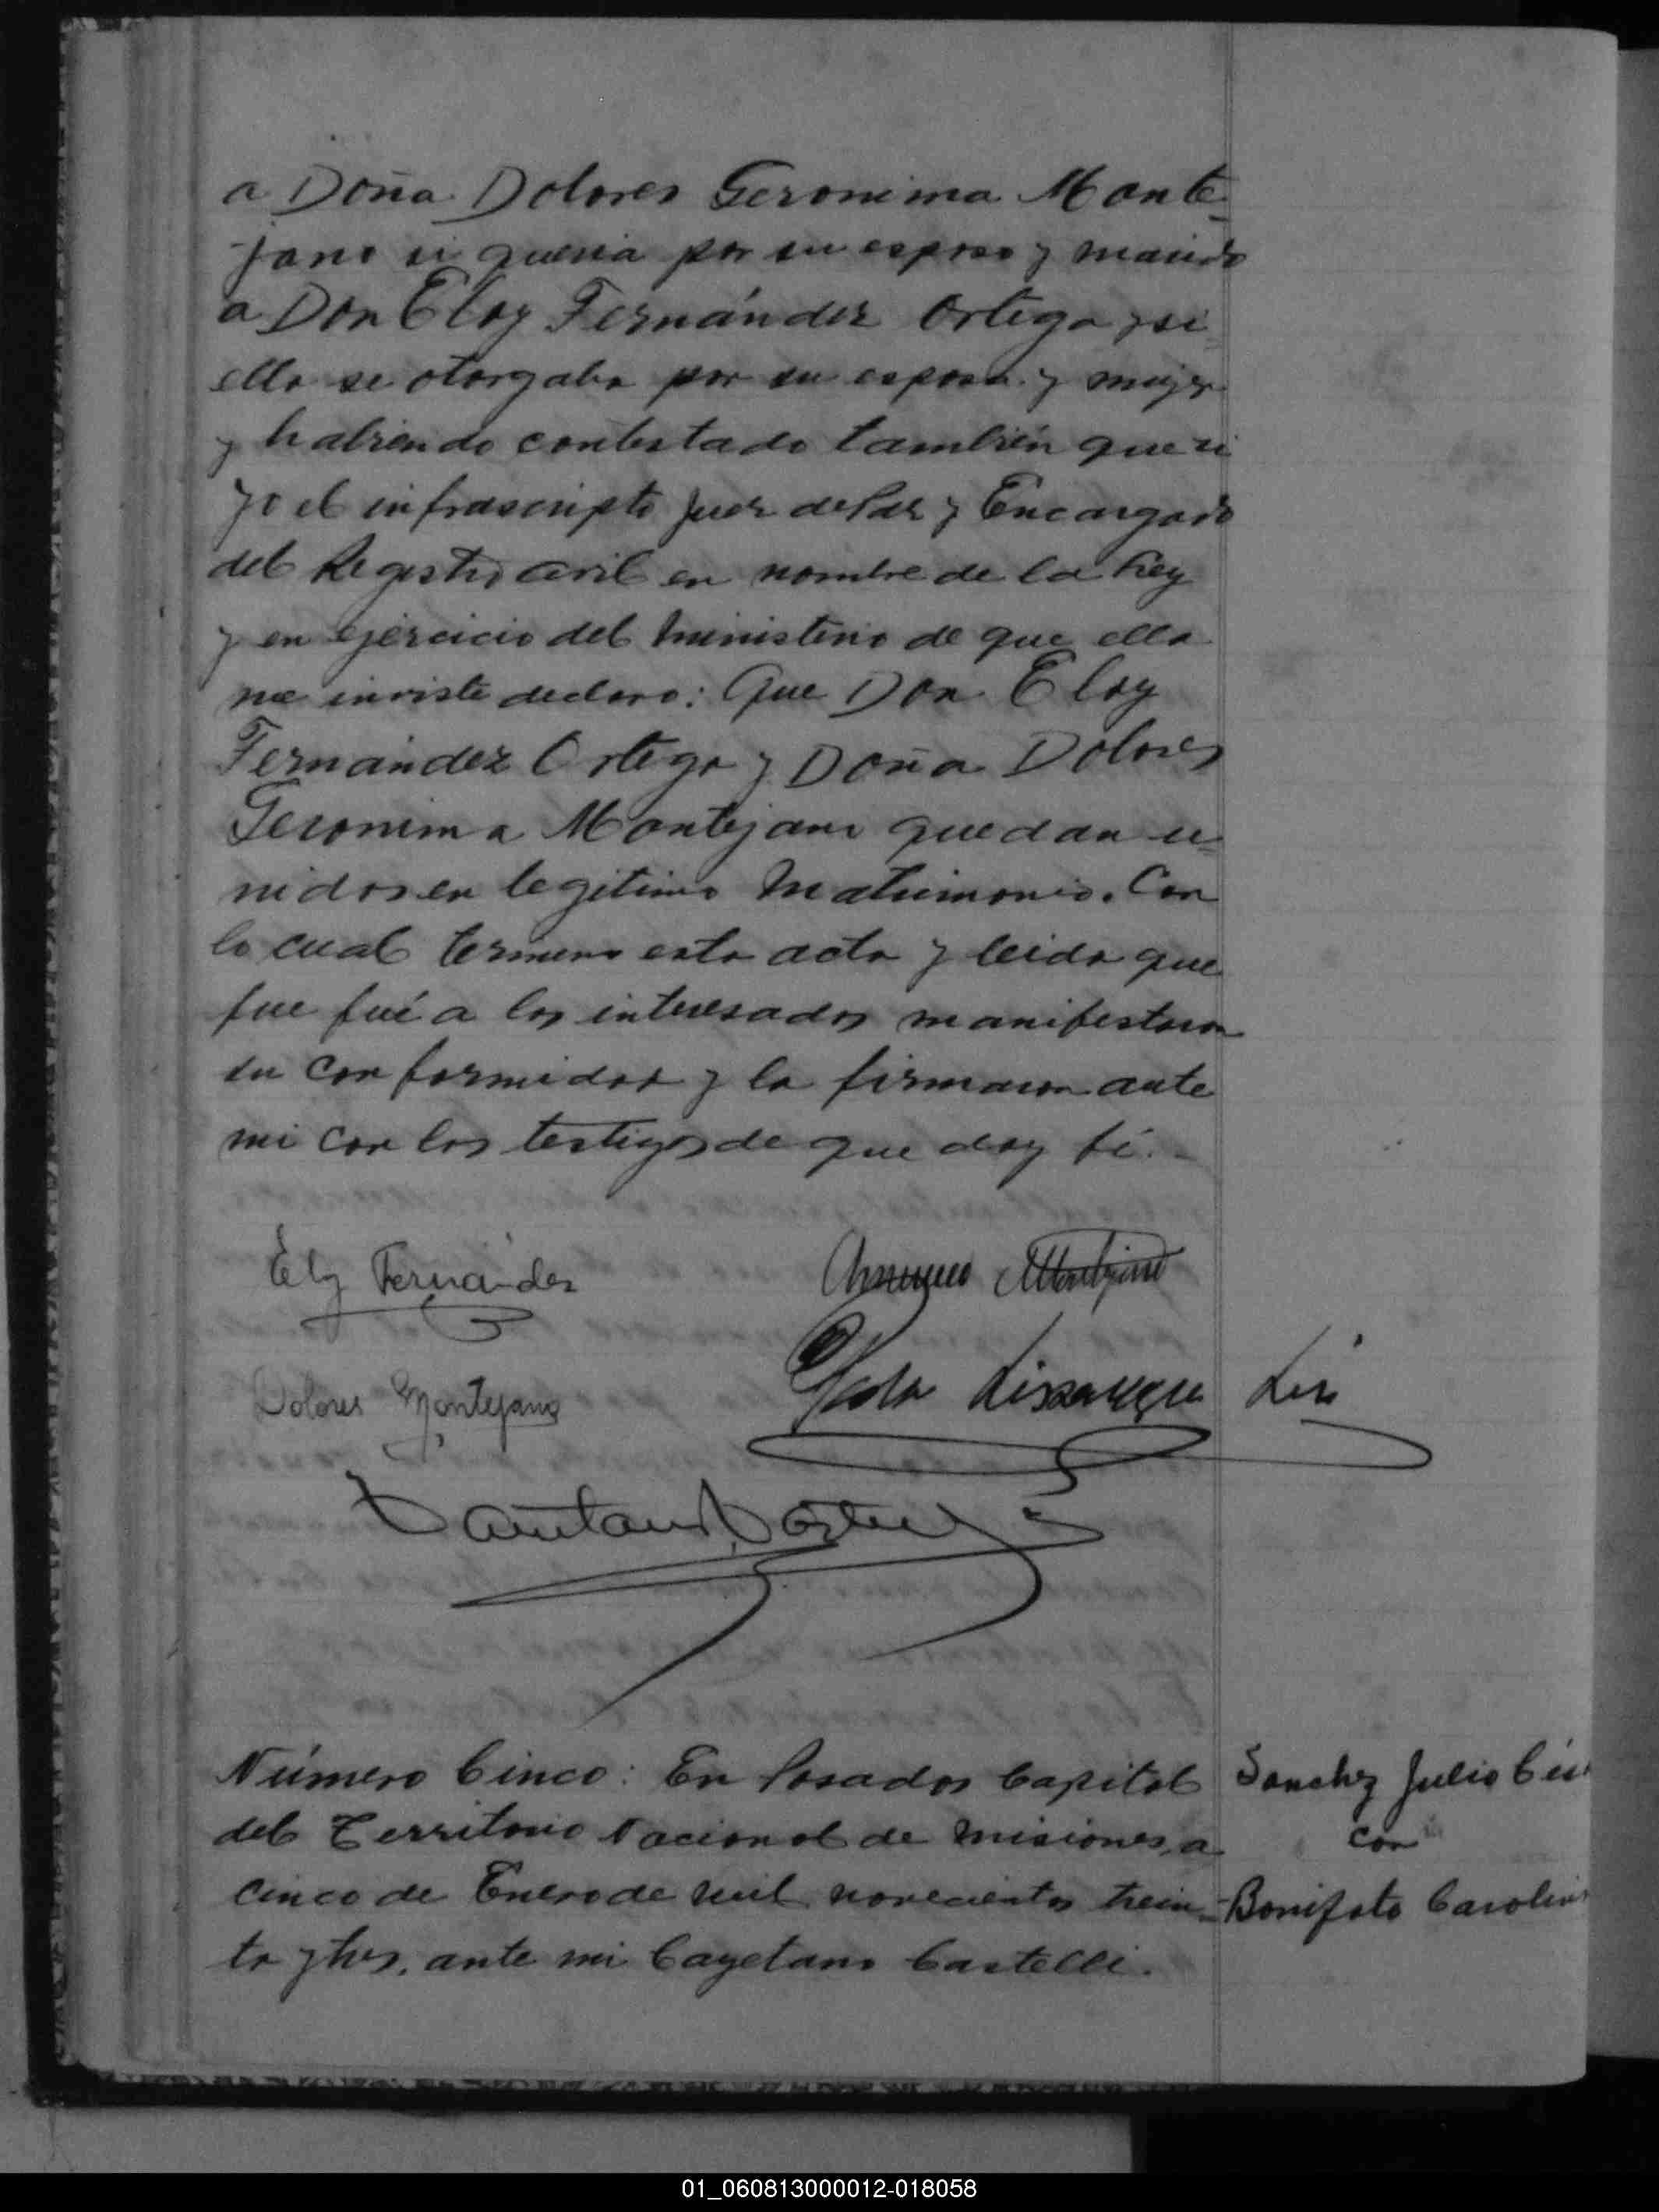 a Doña Dolores Geronima Monte-
jano si queria por su esposo y marido
a Don Eloy Fernández Ortega y si
ella se otorgaba por su esposa y mujer
y habiendo contestado también que si
yo el infrascripto Juez de Paz y Encargado
del Registro Civil en nombre de la Ley
y en ejercicio del Ministerio de que ella
me inviste declaro: Que Don Eloy
Fernández Ortega y Doña Dolores
Geronima Montejano quedan u=
nidos en legitimo Matrimonio. Con
lo cual termino esta acta y leida que
fue fué a los interesados manifestaron
su conformidad y la firmaron ante
mi con los testigos de que doy fé.-
Eloy Fernández
Montejano
Dolores Montejano
Número Cinco: En Posadas Capital
del Territorio Nacional de Misiones, a
cinco de Enero de mil novecientos trein-
ta y tres, ante mi Cayetano Castelli.
Sanchez Julio
con
Bonifato